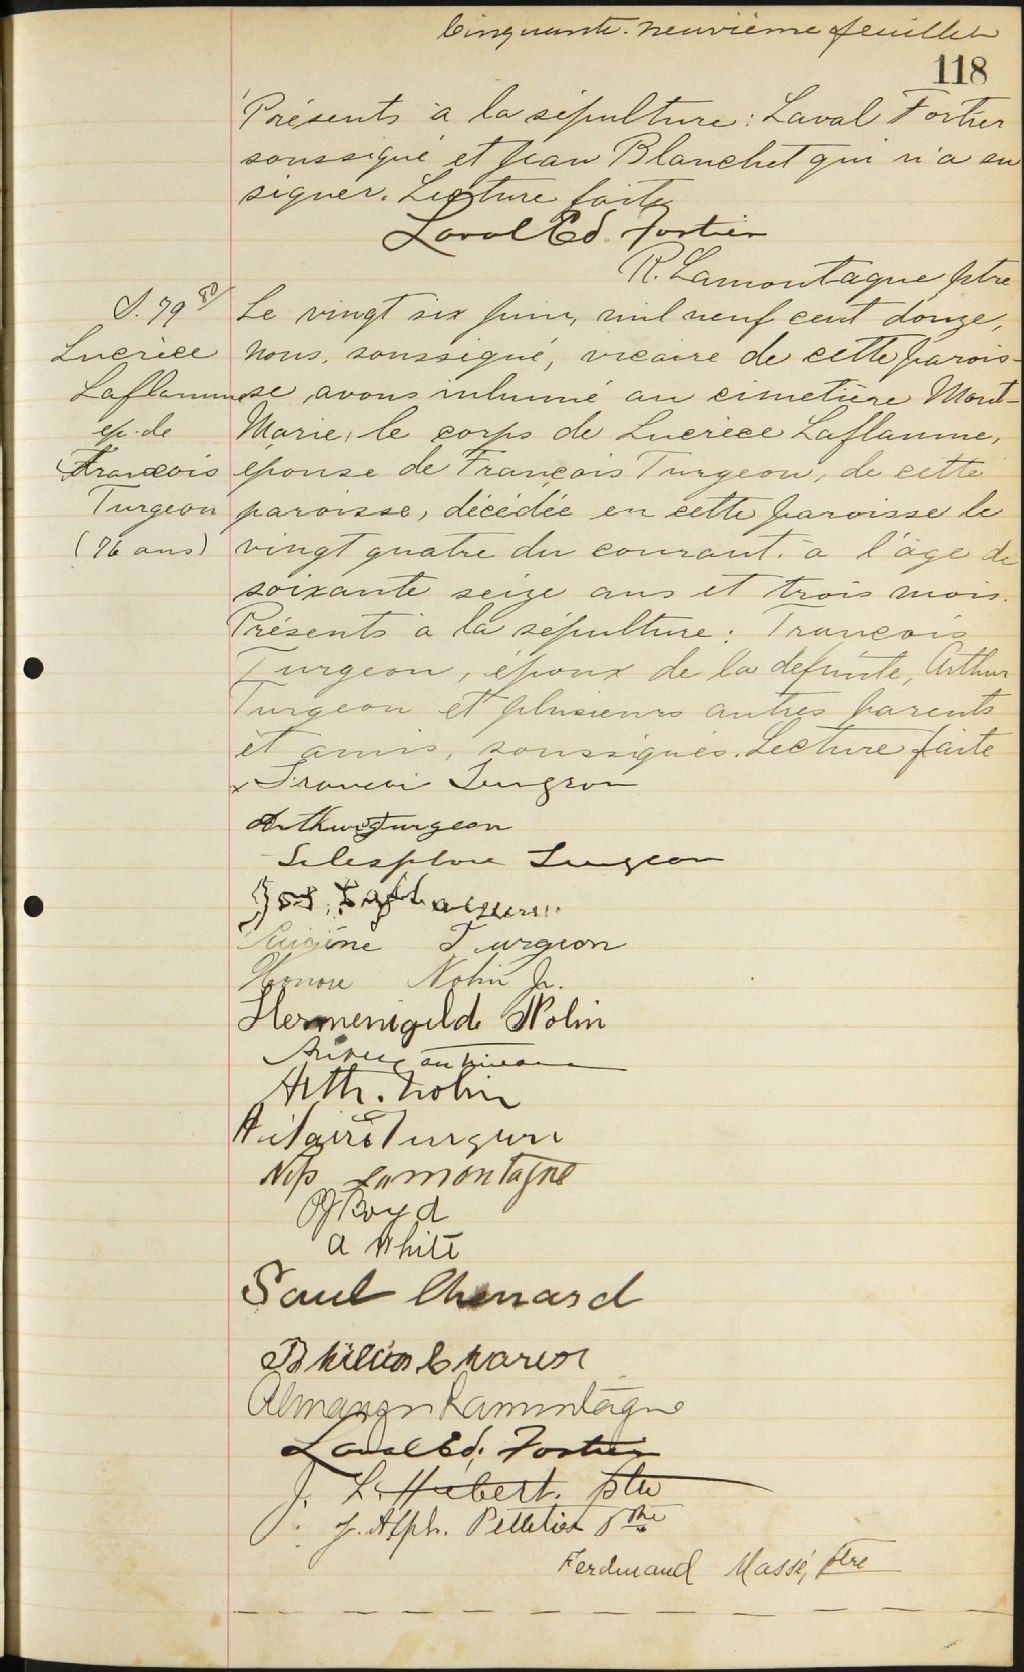 Cinquante-neuvième feuillet
118
Présents à la sépulture: Laval Fortier
soussigné et Jean Blanchet qui n'a su
signer. Lecture faite
Laval Ed. Fortier
R. Lamontagne ptre
S. 79
Lucrèce
Laflamme
ep. de
François
Turgeon
(76 ans)
Le vingt six juin, mil neuf cent douze,
nous, soussigné, vicaire de cette parois-
se avons inhumé au cimetière Mont-
Marie, le corps de Lucrèce Laflamme,
épouse de François Turgeon, de cette
paroisse, décédée en cette paroisse le
vingt quatre du courant, à l'âge de
soixante seize ans et trois mois.
Présents à la sépulture: François
Turgeon, époux de la défunte, Arthur
Turgeon et plusieurs autres parents
et amis, soussignés. Lecture faite
x Francoi Turgeon
Arthur Turgeon
Telesphore Turgeon
Jos. Laflamme
Eugène Turgeon
Honore Nolin Jr.
Hermenigilde Nolin
Arth. Nolin
Hilaire Turgeon
Nap Lamontagne
Boyd
A White
Saul Chenard
Lamontagne
Laval Ed. Fortier
J. L. Hébert. ptre
J. Alph. Pelletier ptre
Ferdinand Massé, ptre